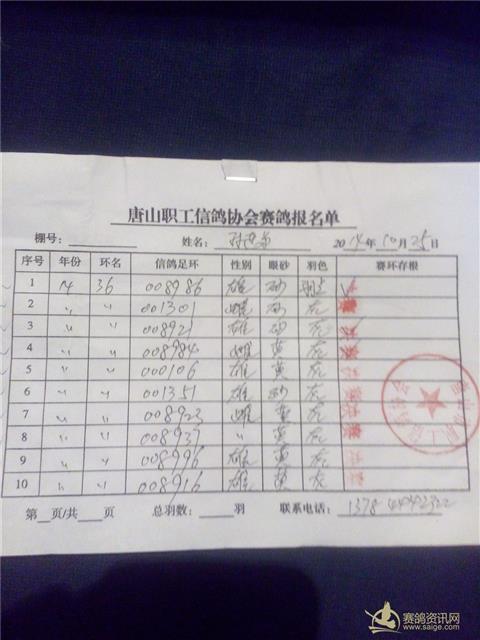 唐山职工信鸽协会赛鸽报名单
棚号: 姓名: 2014年10月25日
序号 年份 环名 信鸽足环 性别 眼砂 羽色 赛环存根
1 14 36 008986 雄 砂
2 〃 〃 001301 雌 砂 灰
3 〃 〃 008921 雄 砂 灰
4 〃 〃 008984 雌 黄 灰
5 〃 〃 000106 雄 黄 灰
6 〃 〃 001351 雄 砂 灰
7 〃 〃 008923 雌 黄 灰
8 〃 〃 008937 〃 黄 灰
9 〃 〃 008996 雄 黄 灰
10 〃 〃 008916 雄 黄 灰
第 页/共 页 总羽数: 羽 联系电话:
赛鸽资讯网
www.saige.com